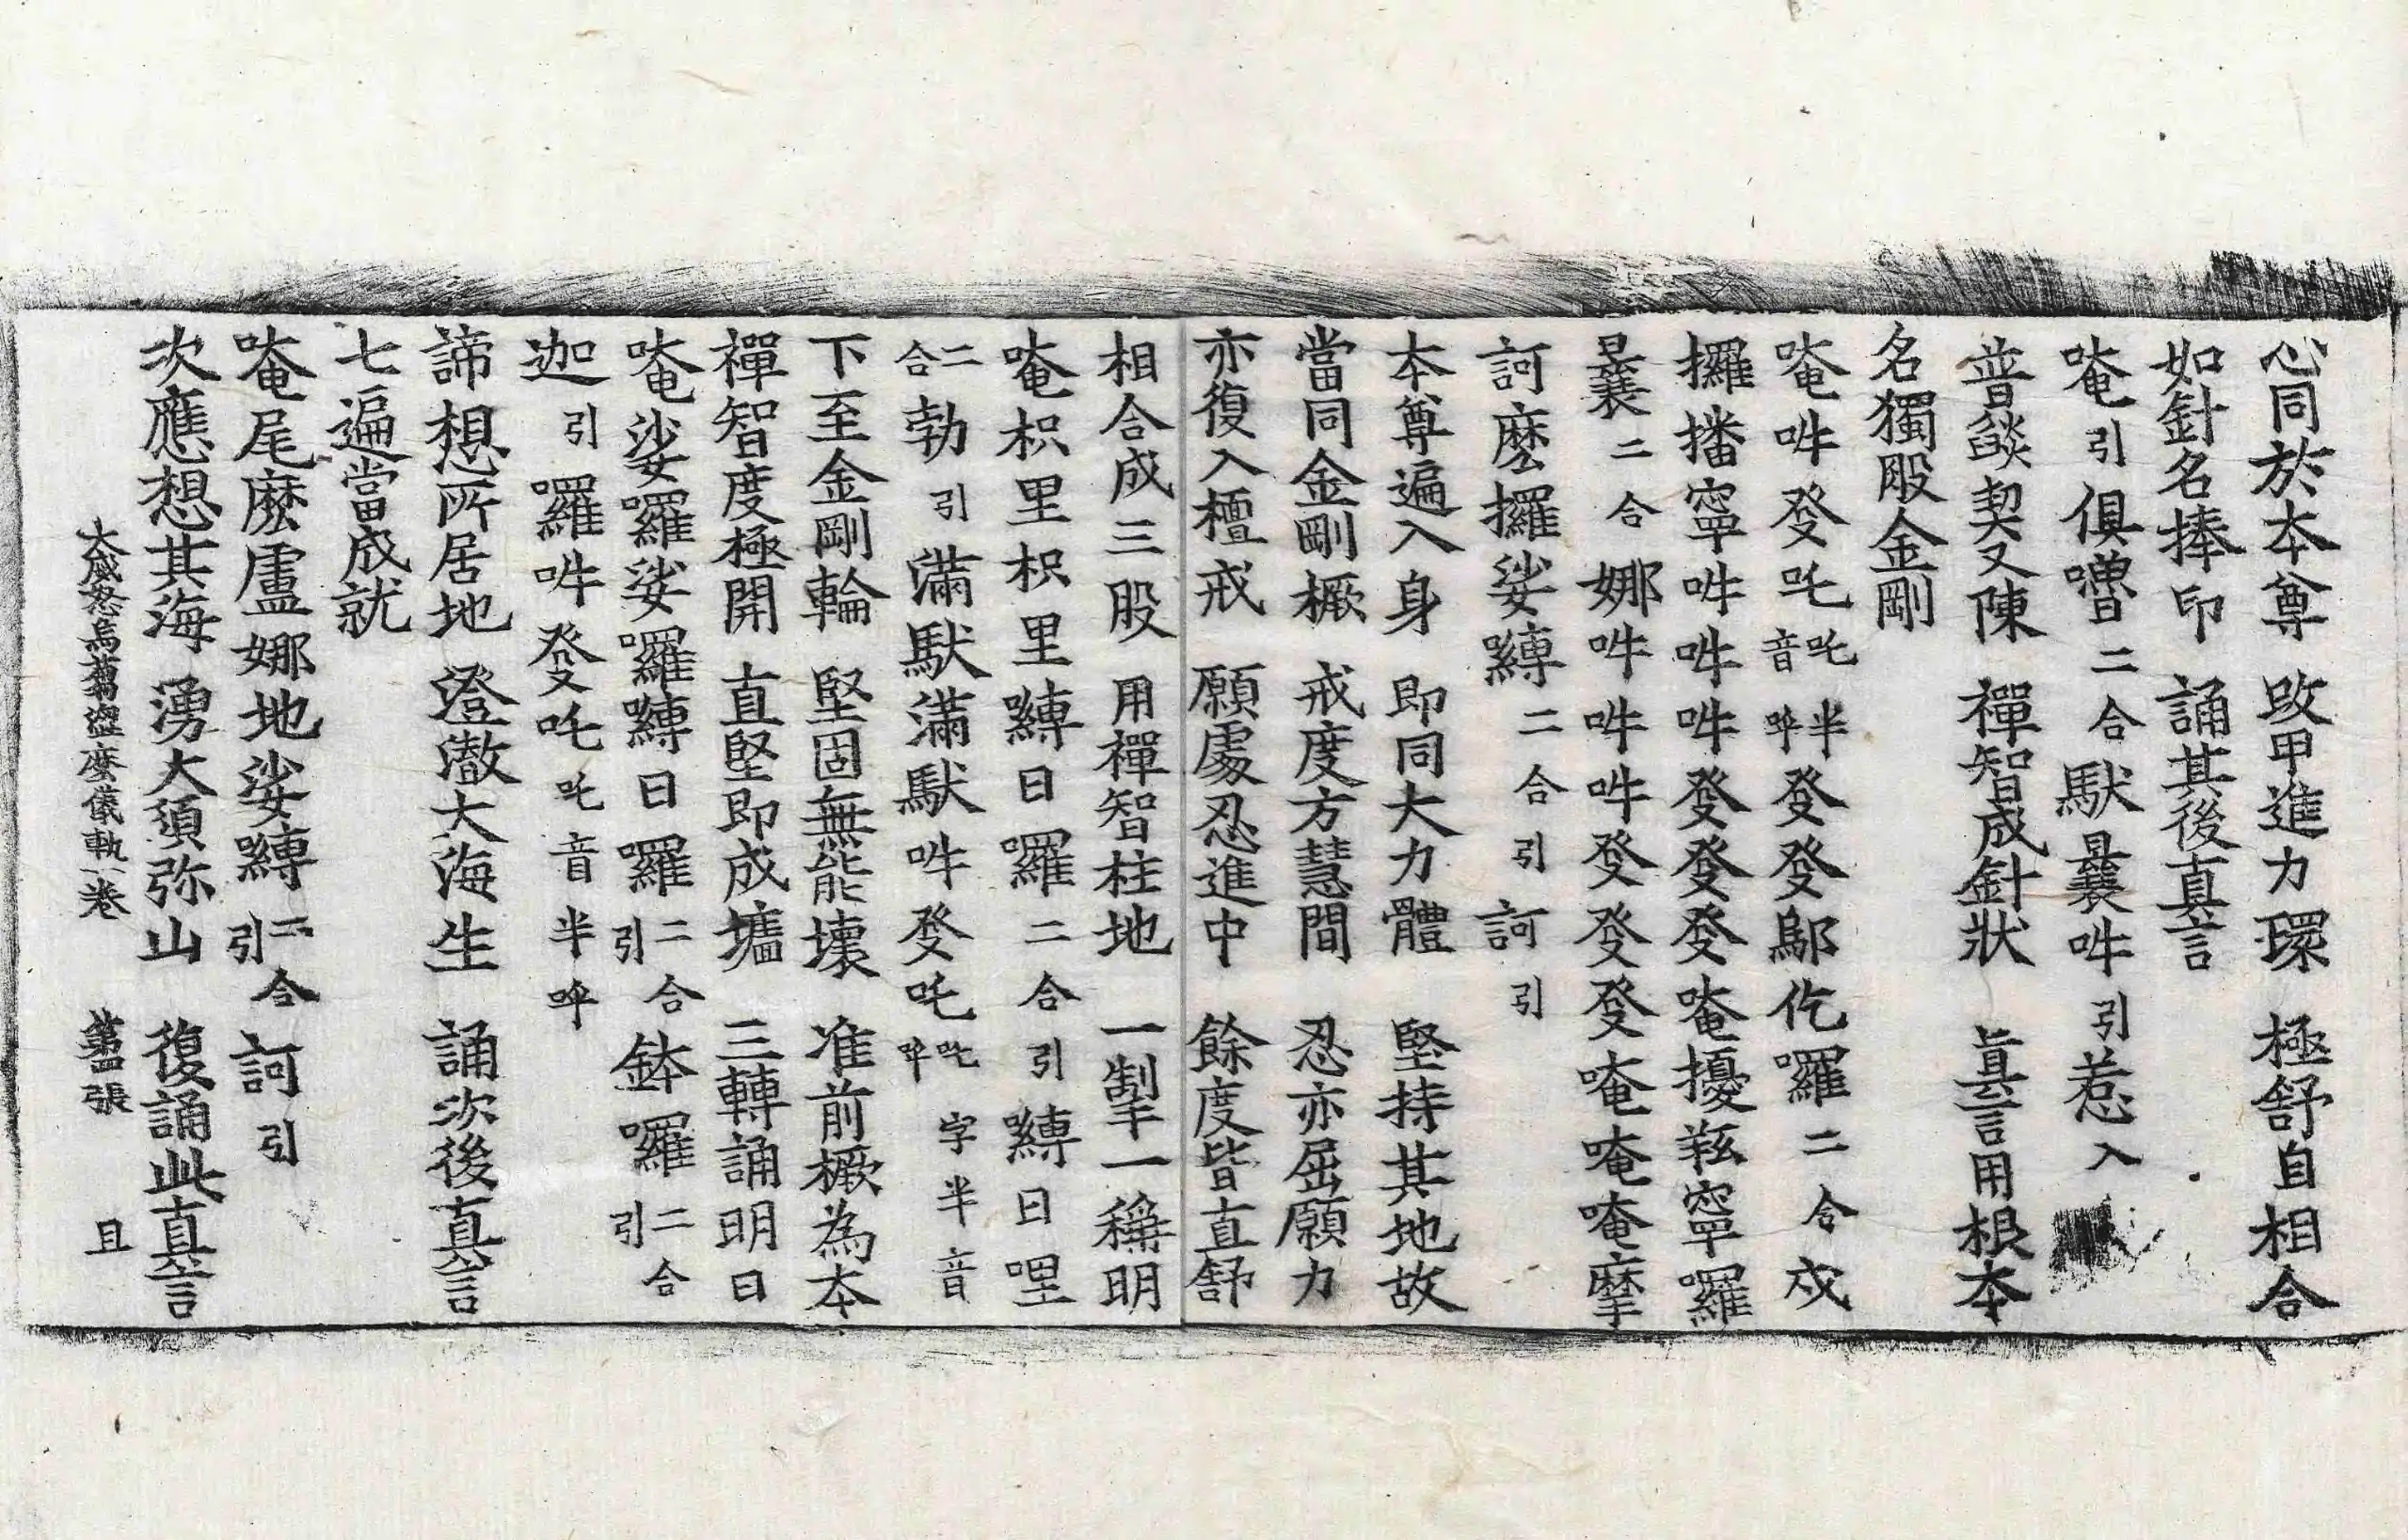 心同於本尊 改甲進力環 極舒自相合
如針名捧印 誦其後真言
唵引俱嚕二合馱曩吽引惹入
普燄契又陳 禪智成針狀 真言用根本
名獨股金剛
唵吽發吒吒音半呼發發鄔仡囉二合戍
攞播寧吽吽吽發發發唵擾羝寧囉
曩二合娜吽吽吽發發發唵唵唵摩
訶麼攞娑嚩二合引訶引
本尊遍入身 即同大力體 堅持其地故
當同金剛橛 戒度方慧間 忍亦屈願力
亦復入檀戒 願處忍進中 餘度皆直舒
相合成三股 用禪智柱地 一掣一稱明
唵枳里枳里嚩日囉二合引嚩日哩
二合勃引滿馱滿馱吽發吒吒呼字半音
下至金剛輪 堅固無能壞 准前橛為本
禪智度極開 直堅即成墻 三轉誦明曰
唵娑囉娑囉嚩日囉二合引鉢囉二合引
迦引囉吽發吒吒音半呼
諦想所居地 澄澈大海生 誦次後真言
七遍當成就
唵尾麼盧娜地娑嚩二合引訶引
次應想其海 湧大須弥山 復誦此真言
大威怒烏蒭澀麼儀軌一卷 第四張 且